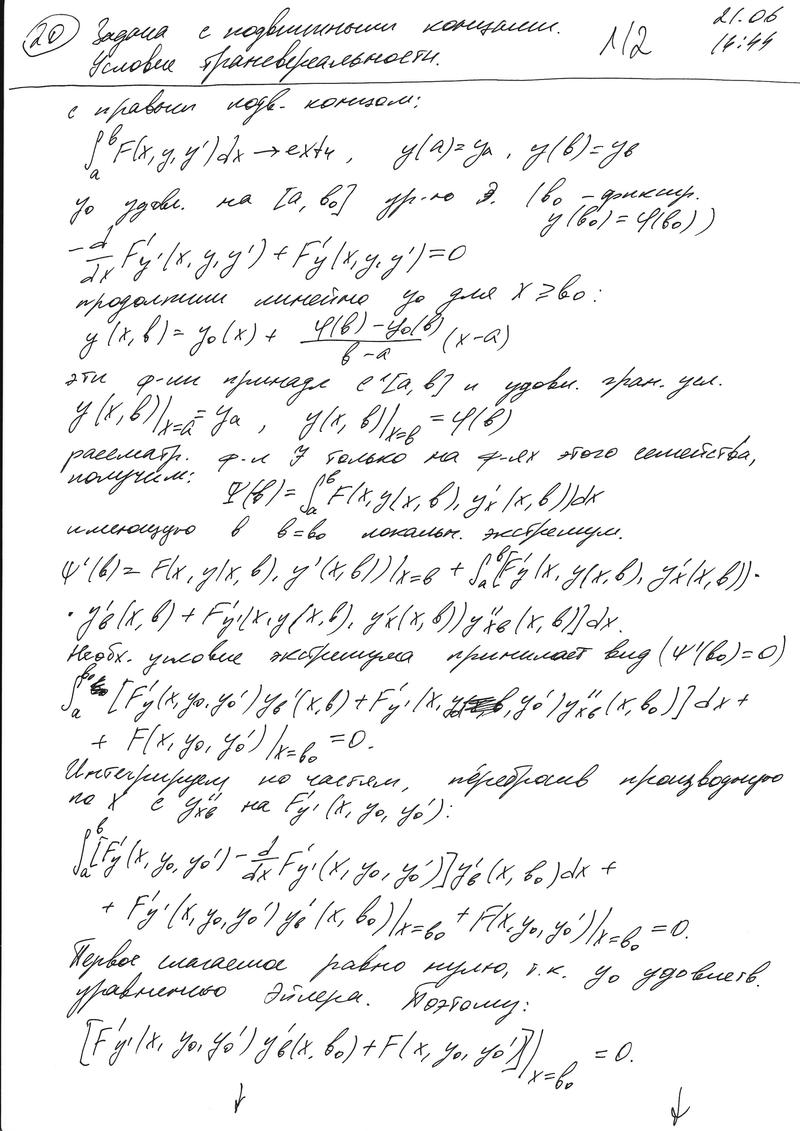 20 Задача с подвижными концами. 1/2 21.06
Условие трансверсальности. 14:44
с правым подв. концом:
∫ₐᵇ F(x, y, y')dx → extr, y(a)=yₐ, y(b)=y_b
y₀ удовл. на [a, b₀] ур-ю Э. (b₀ – фиксир.
y(b₀)=φ(b₀))
-d/dx F'y'(x, y, y') + F'y(x, y, y')=0
продолжим линейно y₀ для x ≥ b₀:
y(x, b) = y₀(x) + (φ(b) - y₀(b))/(b-a) (x-a)
эти ф-ии принадл C¹[a, b] и удовл. гран. усл.
y(x, b)|x=a = yₐ, y(x, b)|x=b = φ(b)
рассматр. ф-л J только на ф-ях этого семейства,
получим: Ψ(b) = ∫ₐᵇ F(x, y(x, b), y'x(x, b))dx
имеющую в b=b₀ локальн. экстремум.
Ψ'(b) = F(x, y(x, b), y'(x, b))|x=b + ∫ₐᵇ[F'y(x, y(x, b), y'x(x, b))·
· y'b(x, b) + F'y'(x, y(x, b), y'x(x, b))y''xb(x, b)]dx.
Необх. условие экстремума принимает вид (Ψ'(b₀)=0)
∫ₐᵇ⁰ [F'y(x, y₀, y₀')yb'(x, b) + F'y'(x, y₀, y₀')y''xb(x, b₀)]dx +
+ F(x, y₀, y₀')|x=b₀ = 0.
Интегрируем по частям, перебросив производную
по x с y''xb на F'y'(x, y₀, y₀'):
∫ₐᵇ[F'y(x, y₀, y₀') - d/dx F'y'(x, y₀, y₀')]y'b(x, b₀)dx +
+ F'y'(x, y₀, y₀')y'b(x, b₀)|x=b₀ + F(x, y₀, y₀')|x=b₀ = 0.
Первое слагаемое равно нулю, т.к. y₀ удовлетв.
уравнению Эйлера. Поэтому:
[F'y'(x, y₀, y₀')y'b(x, b₀) + F(x, y₀, y₀')]|x=b₀ = 0.
↓ ↓